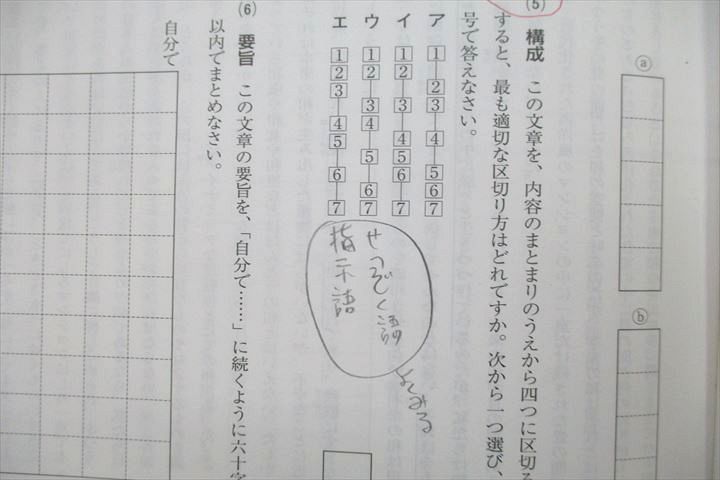 ⓐ
ⓑ
(5) 構成 この文章を、内容のまとまりのうえから四つに区切る
すると、最も適切な区切り方はどれですか。次から一つ選び、
号で答えなさい。
ア 1―23―4―567
イ 12―3―456―7
ウ 12―34―5―67
エ 123―45―6―7
せつぞく語
指示語
よくみる
(6) 要旨 この文章の要旨を、「自分で……」に続くように六十字
以内でまとめなさい。
自分で